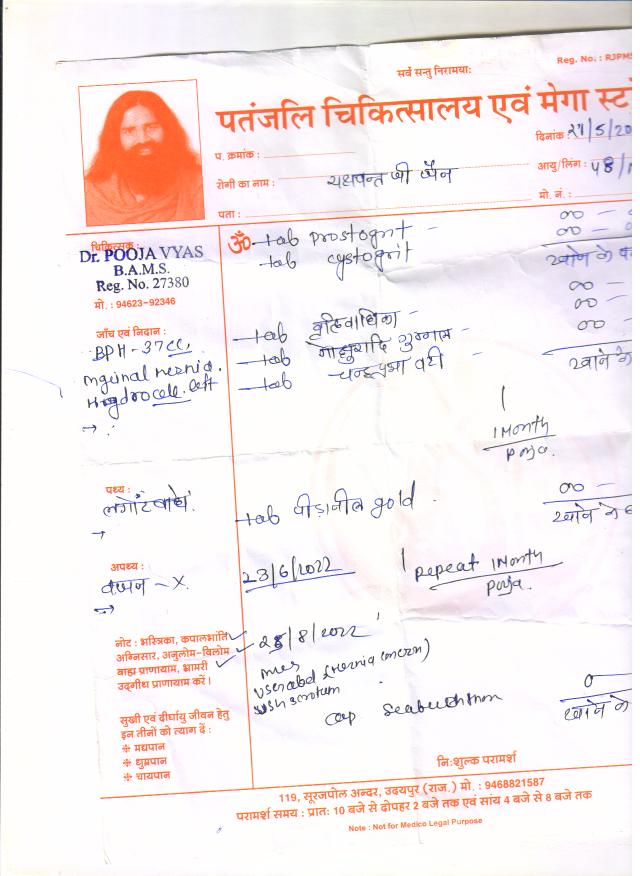 Reg. No. : RJPMS
सर्वे सन्तु निरामया:
पतंजलि चिकित्सालय एवं मेगा स्टो
दिनांक : 21/5/20
प. क्रमांक :
आयु/लिंग : 48/
रोगी का नाम : यशवन्त जी जैन
मो. नं. :
पता :
चिकित्सक :
Dr. POOJA VYAS
B.A.M.S.
Reg. No. 27380
मो. : 94623-92346
ॐ
tab prostogrit -
tab cystogrit
खाने के
जाँच एवं निदान :
BPH - 37 cc,
inginal hernia.
Hydrocell. left
tab वृद्धिवाधिका -
tab गोक्षुरादि गुग्गुल -
tab चन्द्रप्रभा वटी -
खाने के
1 Month
Pooja.
पथ्य :
लगोंट बांधे
tab पीडानील gold.
खाने के
अपथ्य :
वजन - X.
23/6/2022
Repeat 1 Month
Pooja
नोट : भस्त्रिका, कपालभांति
अग्निसार, अनुलोम-विलोम
बाह्य प्राणायाम, भ्रामरी
उद्‌गीथ प्राणायाम करें।
/8/2022
scrotum
cap Seabuckthorn
खाने के
सुखी एवं दीर्घायु जीवन हेतु
इन तीनों को त्याग दें :
मद्यपान
धुम्रपान
चायपान
नि:शुल्क परामर्श
119, सूरजपोल अन्दर, उदयपुर (राज.) मो. : 9468821587
परामर्श समय : प्रात: 10 बजे से दोपहर 2 बजे तक एवं सांय 4 बजे से 8 बजे तक
Note : Not for Medico Legal Purpose